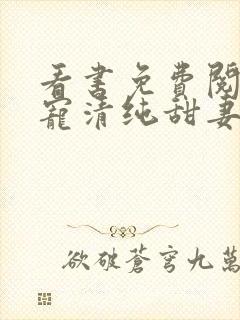 看書免費閱
寵清純甜妻
欲破蒼穹九萬